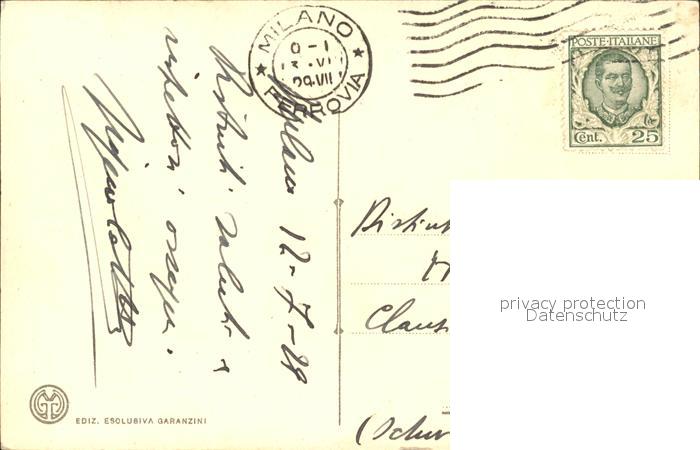 MILANO
0-1
13.VII
FERROVIA
POSTE·ITALIANE
Cent. 25
Milano 12-7-28
Distinti saluti e
rispettosi ossequi.
Distin
Claus
(Schw
privacy protection
Datenschutz
EDIZ. ESCLUSIVA GARANZINI